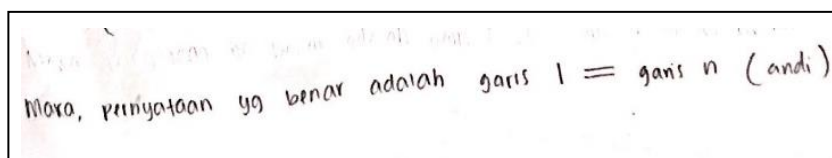 Maka, pernyataan yg benar adalah garis l = garis n (andi)